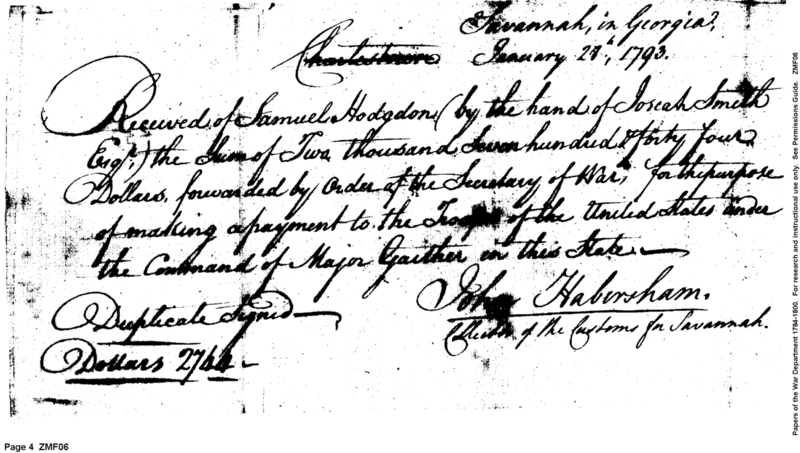 Savannah, in Georgia,
Charlestown January 28th, 1793.
Received, of Samuel Hodgdon, (by the hand of Josiah Smith
Esqr.,) the Sum of Two thousand Seven hundred & forty four
Dollars, forwarded by order of the Secretary of War, for the purpose
of making a payment to the Troops of the United States under
the Command of Major Gaither in this State
Duplicate Signed
John Habersham.
Collector of the Customs for Savannah.
Dollars 2744
Page 4 ZMF06
Papers of the War Department 1784-1800. For research and instructional use only. See Permissions Guide. ZMF06